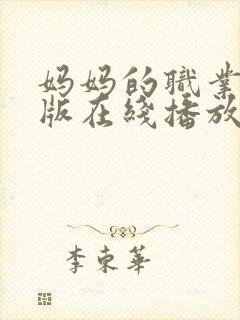 妈妈的職業
版在綫播放
李東華